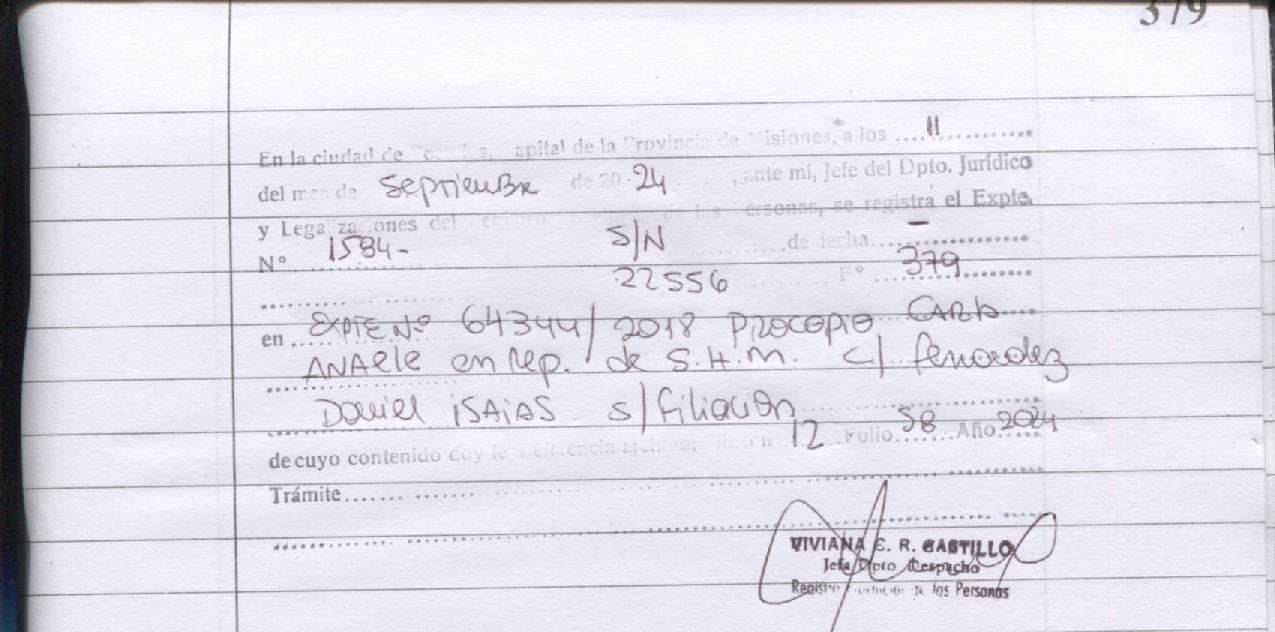 379
En la ciudad de Capital de la Provincia de Misiones, a los .... 11 ............
del mes de septiembre de 20 24 , ante mí, Jefe del Dpto. Jurídico
y Legalizaciones del Registro de las Personas, se registrá el Expte.
N° 1584- S/N de fecha -
22556 F° 379
en EXPTE N° 64344/2018 Procopio CARLA
ANAele en rep. de S.H.M. c/ fernandez
Daniel iSAiAS s/filiación
de cuyo contenido doy fe Referencia archivo; 12 Folio 58 Año 2024
Trámite
VIVIANA E. R. CASTILLO
Jefa Dpto Despacho
Registro de las Personas